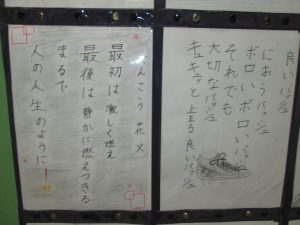 良いバッシュ
におうバッシュ
ボロいボロいバッシュ
それでも
大切なバッシュ
キュキュッと 上る 良いバッシュ
せんこう花火
最初は 激しく燃え
最後は 静かに燃えつきる
まるで
人の人生のように!